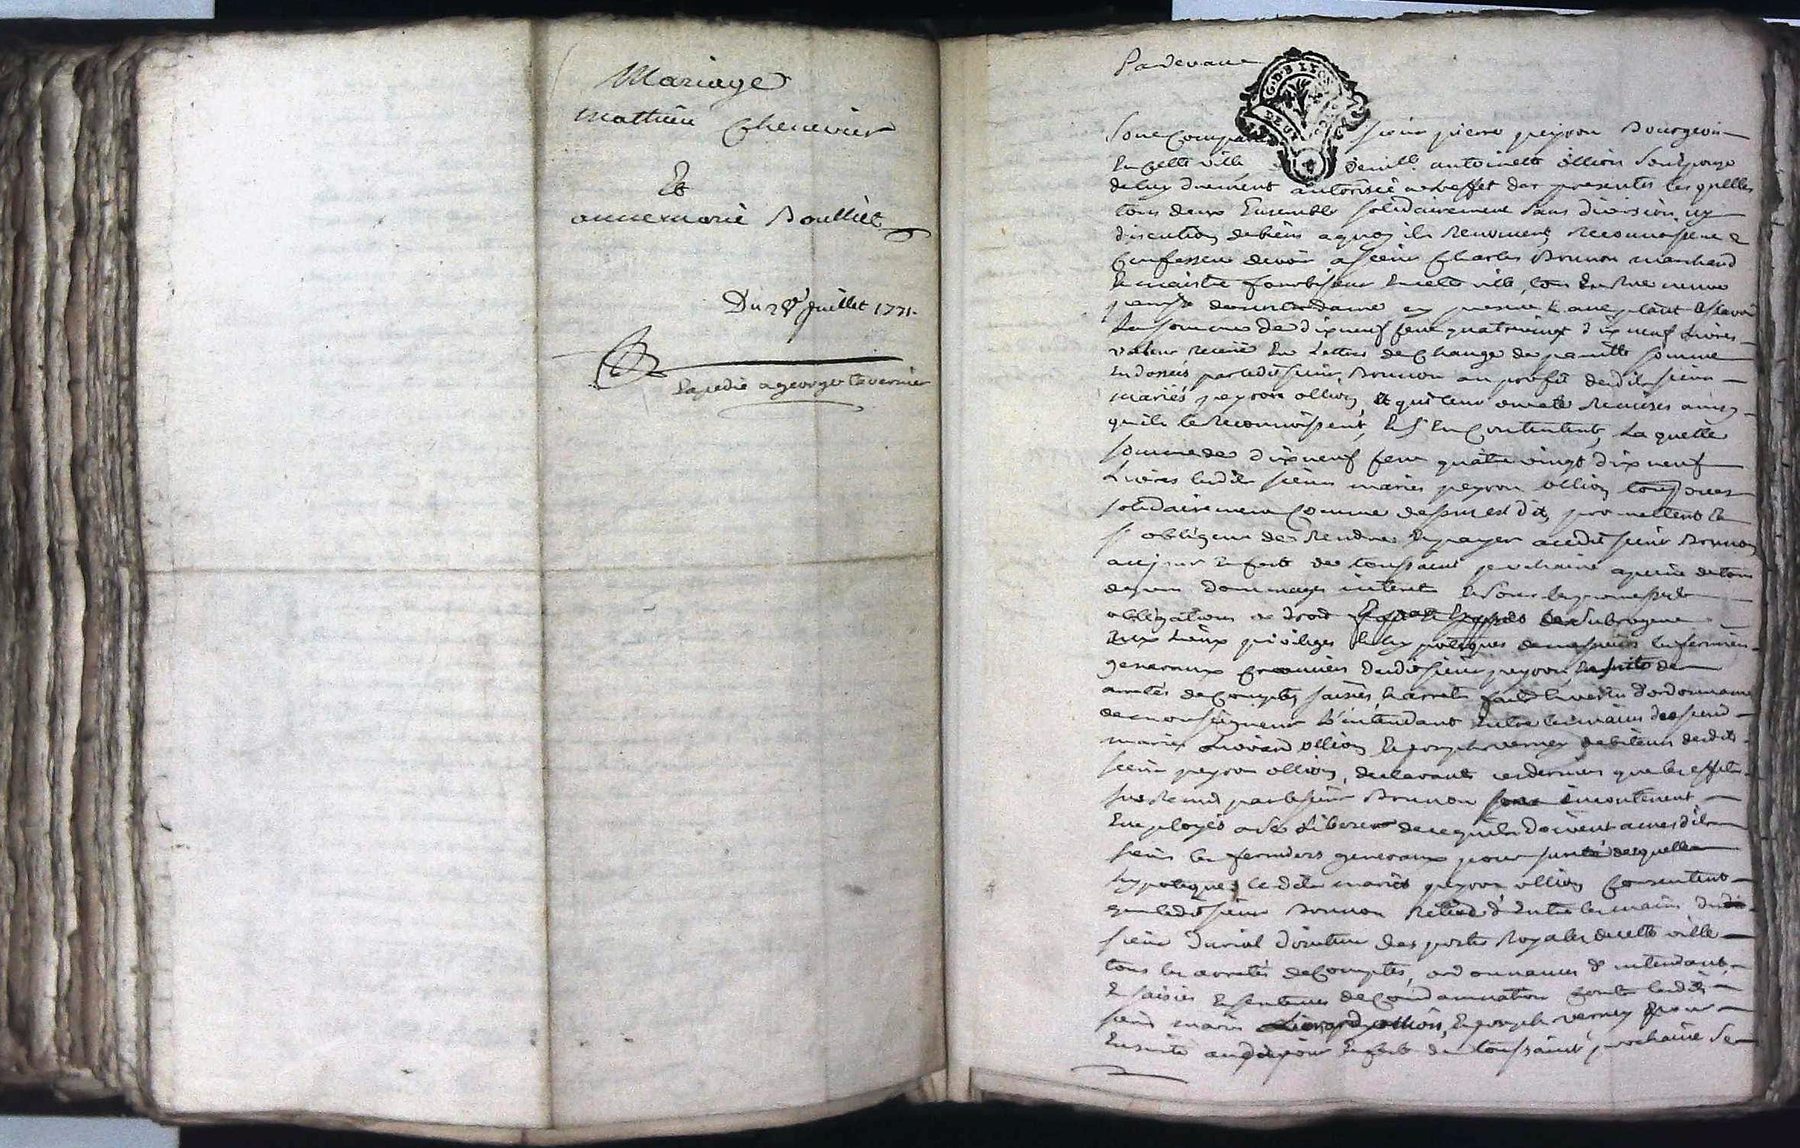 Mariage
mathieu Chenevier
Et
annemarie Boulliet
Du 28e Juillet 1771.
Expedié a george tavernier
Pardevant
GD'B LYON
DEUX
Sont Comparus sieur pierre peyron Bourgeois
En cette ville Demlle. antoinette ollion Son Epouse
de luy duement autorisée a l'effet des presentes lesquelles
tous deux Ensemble solidairement sans division ny
discution de biens a quoy ils Renoncent, Reconnoissent &
Confessent devoir a sieur Charles Brunon marchand
Et maistre fourbisseur En cette ville, Rue neuve
paroisse de notre dame present & acceptant Scavoir
La somme de dix neuf Cent quatrevingt dix neuf Livres
valeur recüe En Lettres de Change de pareille somme
Endossées par ledit sieur Brunon au profit desdits sieurs
mariés peyron ollion, Et qui leur ont eté Remises ainsy
qu'ils le Reconnoissent, Et S'En Contentent, La quelle
somme de dix neuf Cent quatre vingt dix neuf
Livres lesdits sieurs mariés peyron ollion toujours
solidairement Comme dessus est dit, promettent Et
s'obligent de Rendre Et payer audit sieur Brunon
au jour Et feste de toussaint prochaine a peine de tous
depens dommages interets
obligations de droit subrogent
aux Lieux privileges & hypoteques de messieurs les fermiers
generaux Creanciers dudit sieur peyron En suite des
arretés de Comptes, saisies Et arrets fait En vertu d'ordonnance
de monseigneur L'intendant Entre les mains des sieurs
mariés ollion, Et joseph verney debiteurs desdits
sieurs peyron ollion, declarants ces derniers que les effets
par le sieur Brunon sont
Employés a se Liberer de ce qu'ils doivent a mesdits
sieurs les fermiers generaux pour sureté desquelles
hypoteques lesdits mariés peyron ollion Consentent
que ledit sieur Brunon Retire d'Entre les mains dudit
sieur directeur des postes Royales de cette ville
tous les arretés de Comptes, ordonnances d'intendant
Et saisies Et sentences de Condamnation Contre lesdits
sieurs mariés ollion, Et joseph verney pour
Ensuite audit jour Et feste de toussaint prochaine Se